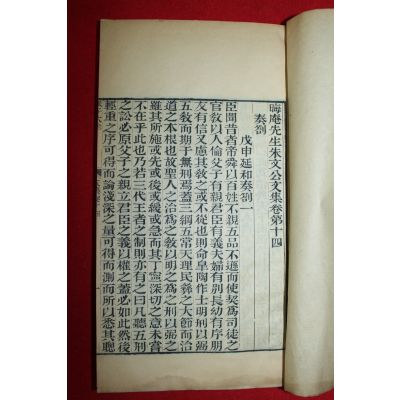 晦庵先生朱文公文集卷第十四
奏劄
戊申延和奏劄一
臣聞昔者帝舜以百姓不親五品不遜而使契為司徒之
官敎以人倫父子有親君臣有義夫婦有別長幼有序朋
友有信又慮其敎之或不從也則命臯陶作士明刑以弼
五敎而期于無刑焉蓋三綱五常天理民彝之大節而治
道之本根也故聖人之治為之敎以明之為之刑以弼之
雖其所施或先或後或緩或急而其丁寧深切之意未嘗
不在乎此也乃若三代王者之制則亦有之曰凡聽五刑
之訟必原父子之親立君臣之義以權之蓋必如此然後
輕重之序可得而論淺深之量可得而測而所以悉其聰